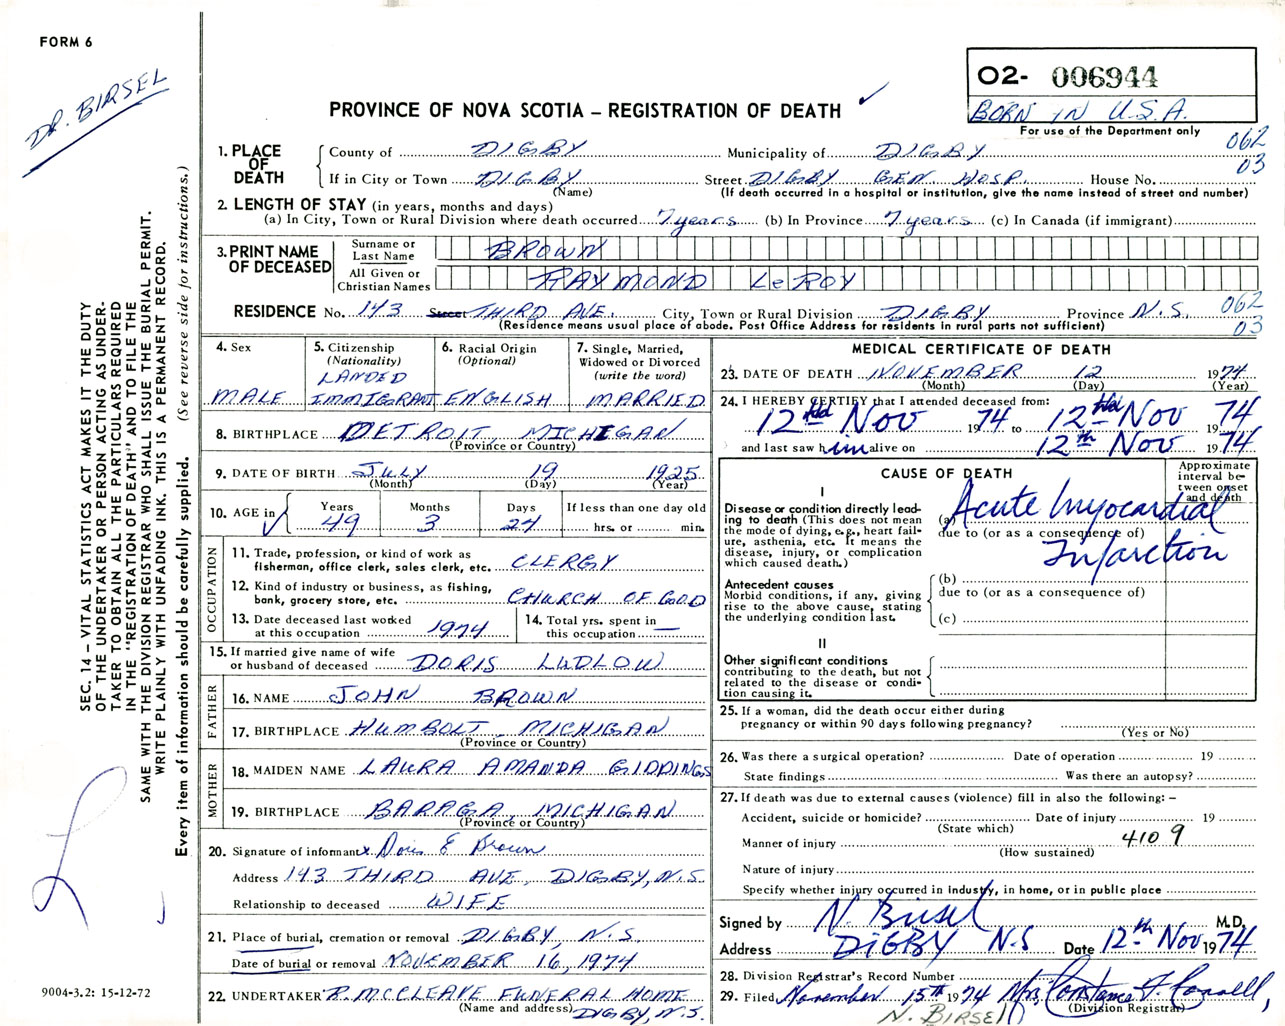 FORM 6
DR. BIRSEL
O2- 006944
BORN IN U.S.A.
For use of the Department only
PROVINCE OF NOVA SCOTIA – REGISTRATION OF DEATH ✓
062
03
1. PLACE OF DEATH
County of DIGBY Municipality of DIGBY
If in City or Town DIGBY Street DIGBY GEN HOSP. House No.
(Name) (If death occurred in a hospital or institution, give the name instead of street and number)
2. LENGTH OF STAY (in years, months and days)
(a) In City, Town or Rural Division where death occurred 7 years (b) In Province 7 years (c) In Canada (if immigrant)
3. PRINT NAME OF DECEASED
Surname or Last Name BROWN
All Given or Christian Names RAYMOND LeROY
RESIDENCE No. 143 Street THIRD AVE. City, Town or Rural Division DIGBY Province N.S.
(Residence means usual place of abode. Post Office Address for residents in rural parts not sufficient)
062
03
4. Sex
MALE
5. Citizenship
(Nationality)
LANDED
IMMIGRANT
6. Racial Origin
(Optional)
ENGLISH
7. Single, Married,
Widowed or Divorced
(write the word)
MARRIED
8. BIRTHPLACE DETROIT, MICHIGAN
(Province or Country)
9. DATE OF BIRTH JULY 19 1925
(Month) (Day) (Year)
10. AGE in ✓
Years Months Days If less than one day old
49 3 24 hrs. or min.
OCCUPATION
11. Trade, profession, or kind of work as
fisherman, office clerk, sales clerk, etc. CLERGY
12. Kind of industry or business, as fishing,
bank, grocery store, etc. CHURCH OF GOD
13. Date deceased last worked
at this occupation 1974
14. Total yrs. spent in
this occupation —
15. If married give name of wife
or husband of deceased DORIS LUDLOW
FATHER
16. NAME JOHN BROWN
17. BIRTHPLACE HUMBOLT, MICHIGAN
(Province or Country)
MOTHER
18. MAIDEN NAME LAURA AMANDA GIDDINGS
19. BIRTHPLACE BARAGA, MICHIGAN
(Province or Country)
20. Signature of informant x Doris E Brown
Address 143 THIRD AVE, DIGBY, N.S.
Relationship to deceased WIFE
21. Place of burial, cremation or removal DIGBY, N.S.
Date of burial or removal NOVEMBER 16, 1974
22. UNDERTAKER R. MCCLEAVE FUNERAL HOME
(Name and address) DIGBY, N.S.
MEDICAL CERTIFICATE OF DEATH
23. DATE OF DEATH NOVEMBER 12 1974
(Month) (Day) (Year)
24. I HEREBY CERTIFY that I attended deceased from:
12 Nov 1974 to 12 Nov 1974
and last saw him alive on 12th Nov 1974
CAUSE OF DEATH
Approximate
interval be-
tween onset
and death
I
Disease or condition directly lead-
ing to death (This does not mean
the mode of dying, e.g., heart fail-
ure, asthenia, etc. It means the
disease, injury, or complication
which caused death.)
(a) Acute Myocardial
due to (or as a consequence of)
Infarction
Antecedent causes
Morbid conditions, if any, giving
rise to the above cause, stating
the underlying condition last.
(b)
due to (or as a consequence of)
(c)
II
Other significant conditions
contributing to the death, but not
related to the disease or condi-
tion causing it.
25. If a woman, did the death occur either during
pregnancy or within 90 days following pregnancy?
(Yes or No)
26. Was there a surgical operation? Date of operation 19
State findings Was there an autopsy?
27. If death was due to external causes (violence) fill in also the following: –
Accident, suicide or homicide? Date of injury 19
(State which)
Manner of injury 4109
(How sustained)
Nature of injury
Specify whether injury occurred in industry, in home, or in public place
Signed by N. Birsel M.D.
Address DIGBY N.S Date 12th Nov 1974
28. Division Registrar's Record Number
29. Filed November 15th 1974 Mrs. Constance F. Connell,
(Division Registrar)
N. BIRSEL
SEC. 14 – VITAL STATISTICS ACT MAKES IT THE DUTY
OF THE UNDERTAKER OR PERSON ACTING AS UNDER-
TAKER TO OBTAIN ALL THE PARTICULARS REQUIRED
IN THE "REGISTRATION OF DEATH" AND TO FILE THE
SAME WITH THE DIVISION REGISTRAR WHO SHALL ISSUE THE BURIAL PERMIT.
WRITE PLAINLY WITH UNFADING INK. THIS IS A PERMANENT RECORD.
Every item of information should be carefully supplied. (See reverse side for instructions.)
9004-3.2: 15-12-72